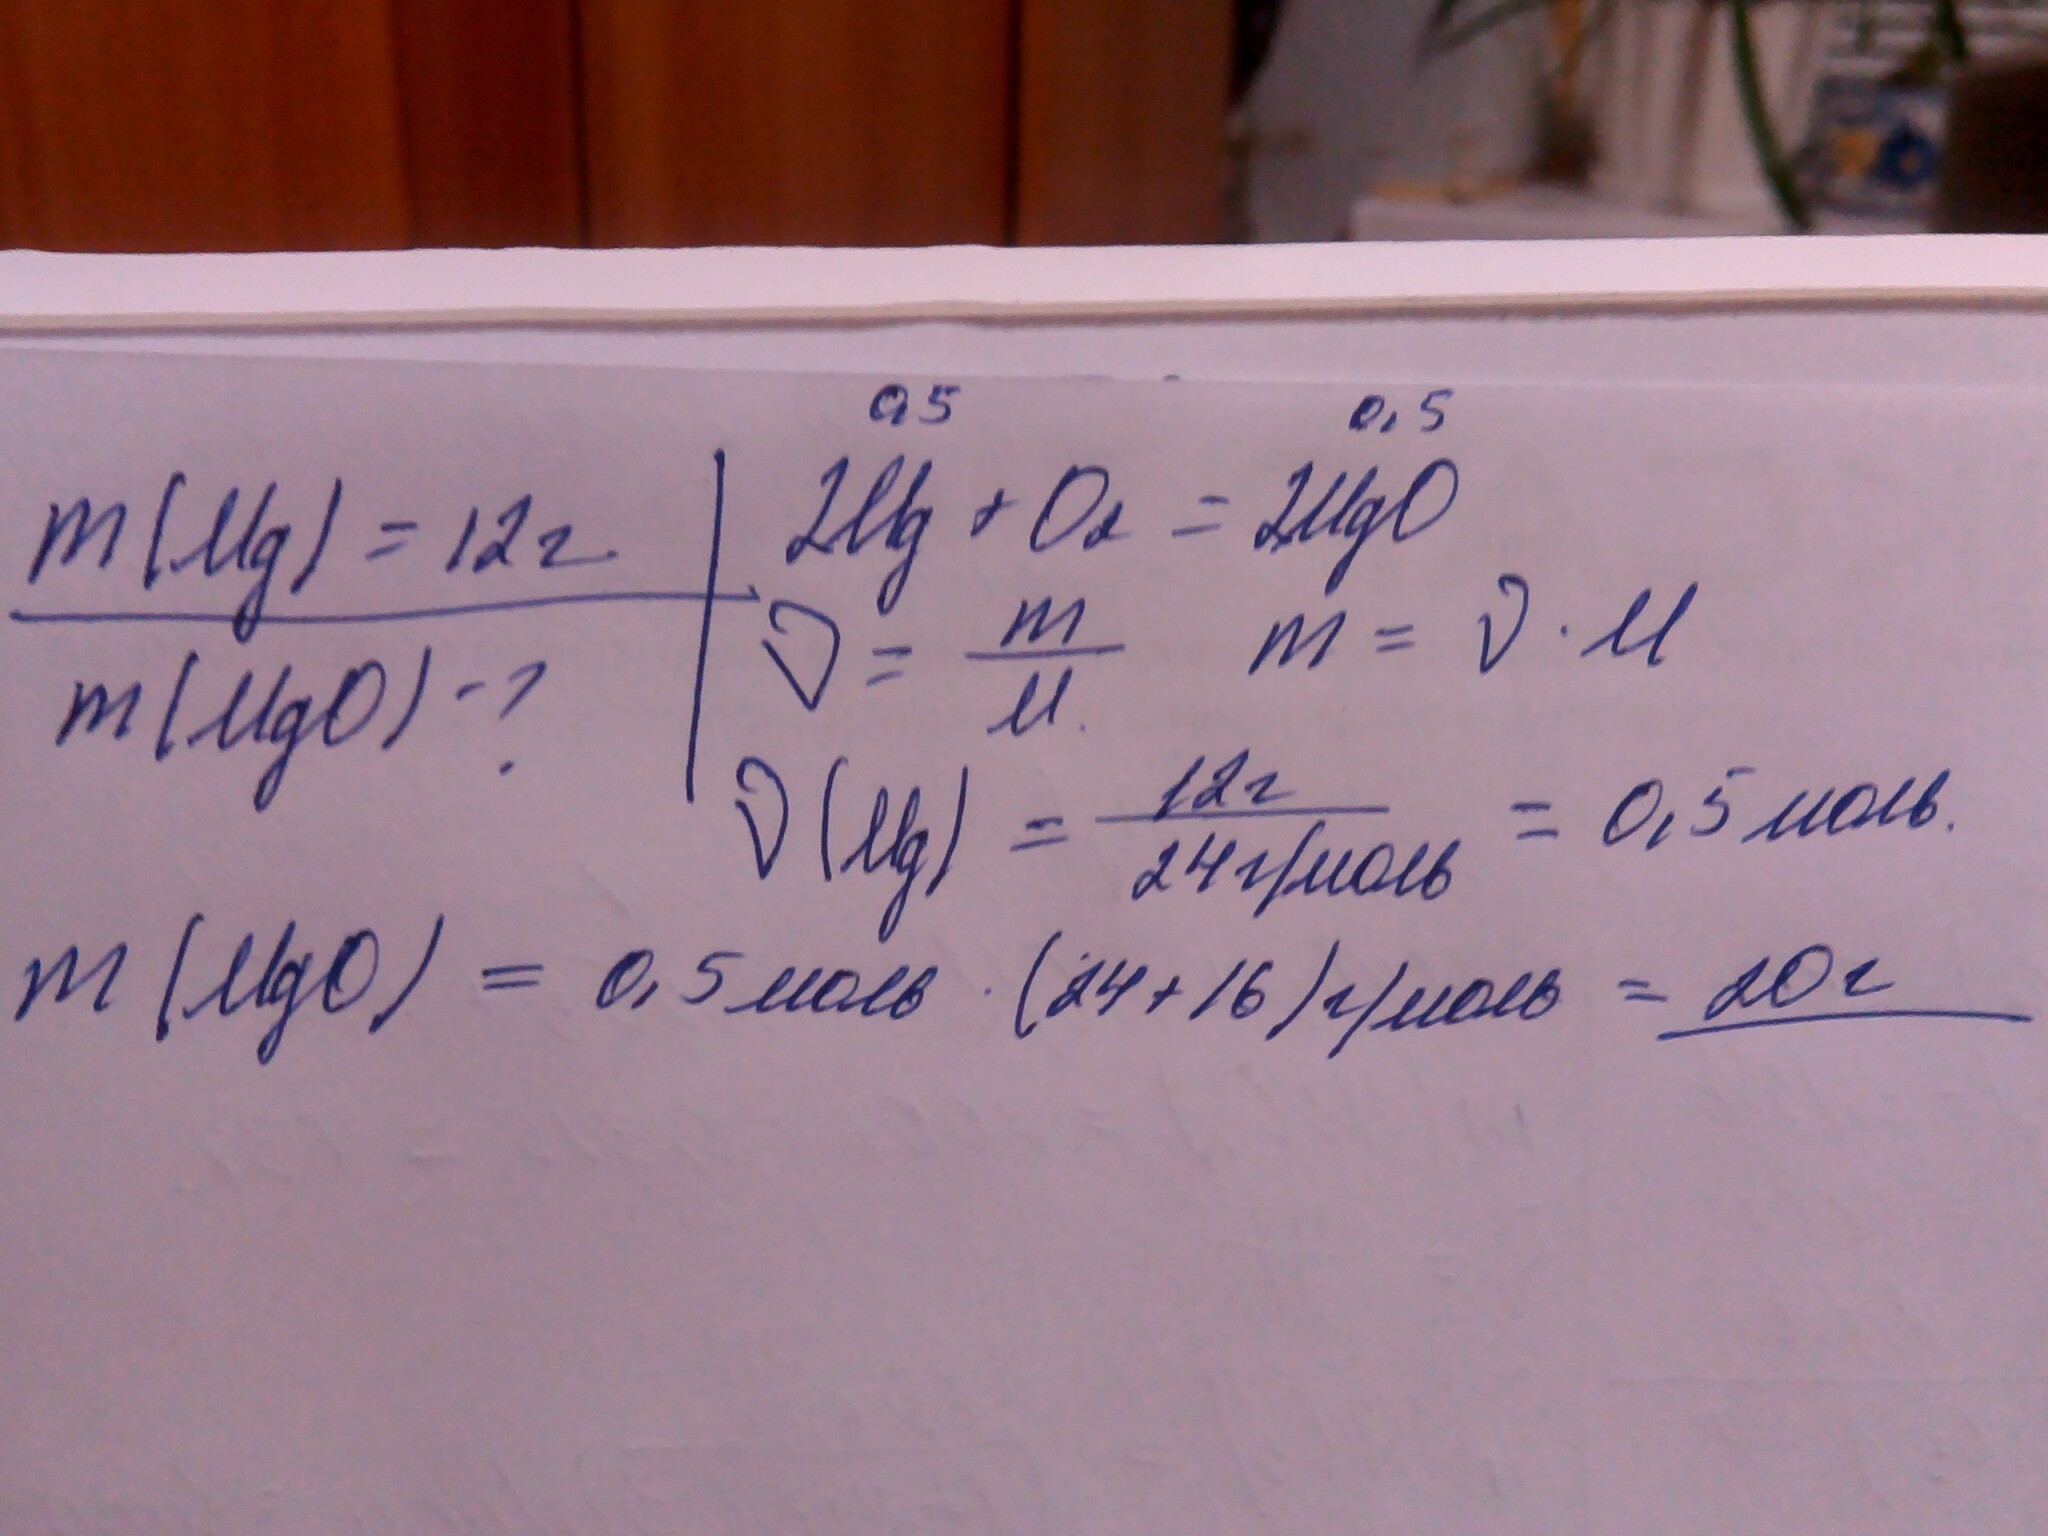 0,5 0,5
m(Mg) = 12г. 2Mg + O₂ = 2MgO
m(MgO) - ? ν = m/M. m = ν · M
ν(Mg) = 12г/24г/моль = 0,5 моль.
m(MgO) = 0,5 моль · (24+16)г/моль = 20г